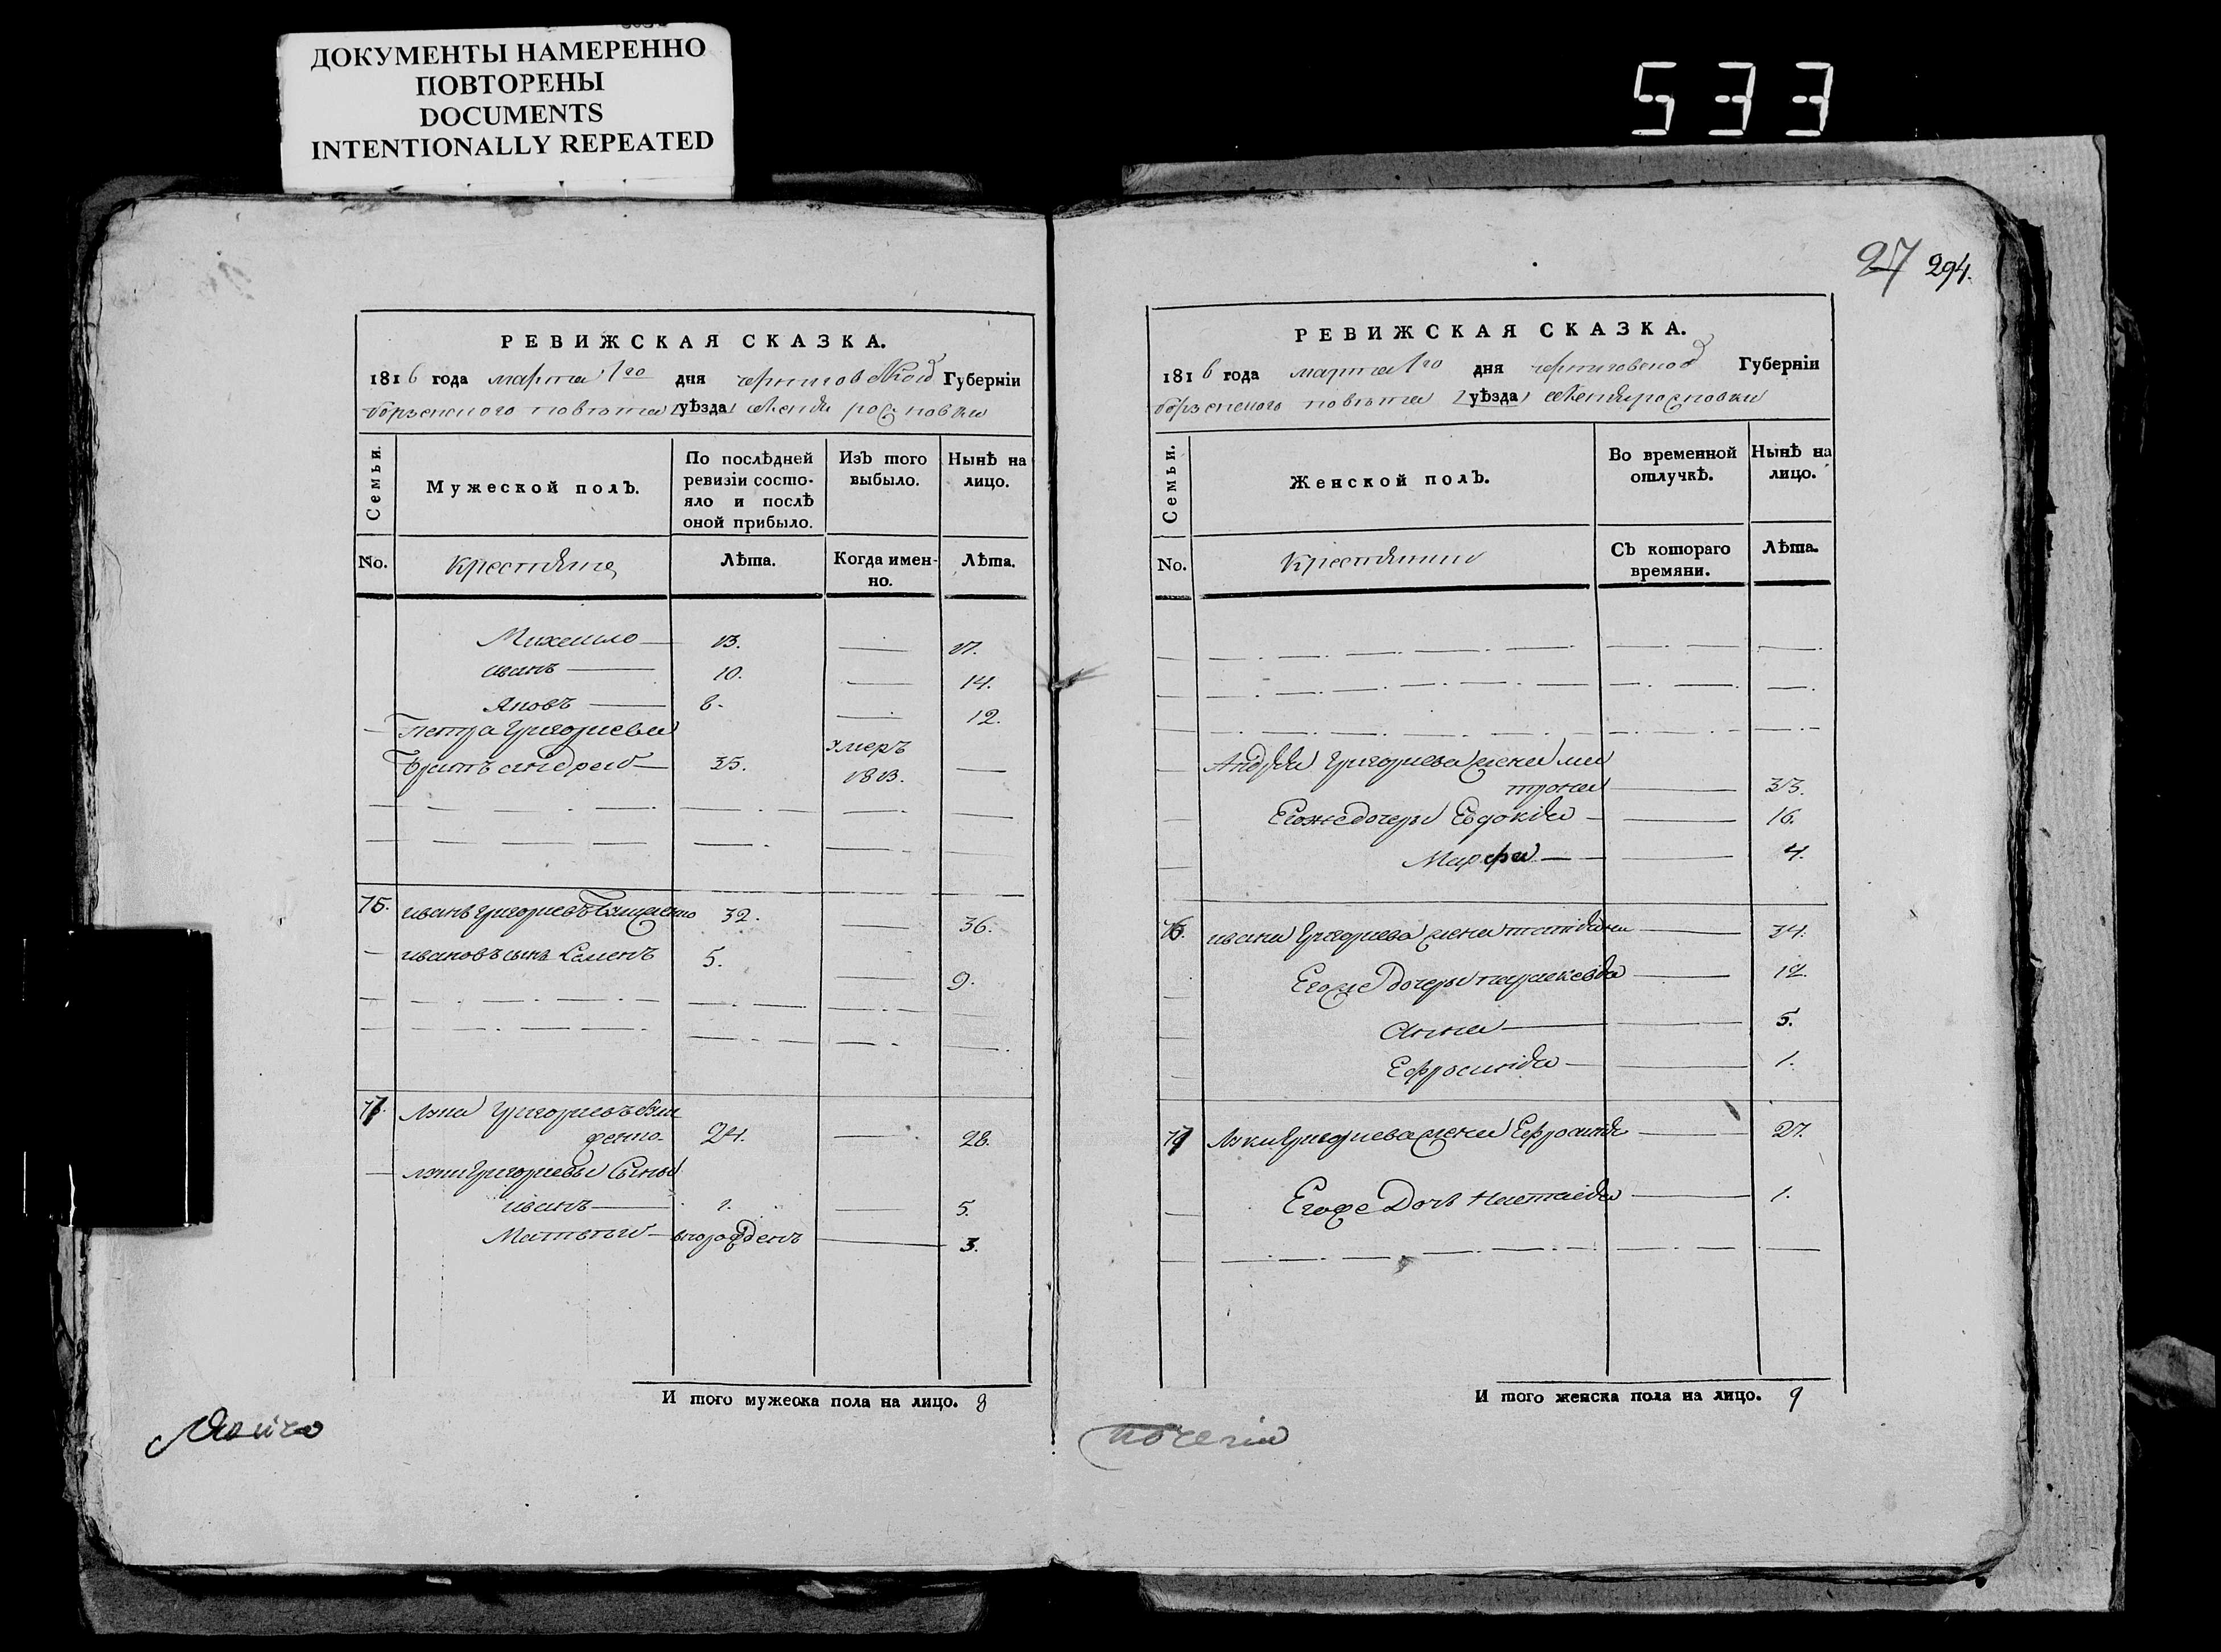 ДОКУМЕНТЫ НАМЕРЕННО
ПОВТОРЕНЫ
DOCUMENTS
INTENTIONALLY REPEATED
533
РЕВИЖСКАЯ СКАЗКА.
1816 года марта 1го дня черниговской Губерніи
борзенского повѣта уѣзда
Семьи.
Мужеской полЪ.
По послѣдней ревизіи состояло и послѣ оной прибыло.
ИзЪ того выбыло.
НынѢ на лицо.
No.
Крестяне
ЛѢта.
Когда именно.
ЛѢта.
Михайло 13. 17.
иванъ 10. 14.
Яковъ 8. 12.
Петра Григориева
братъ андрей 35. умеръ 1813.
75. иванъ григориевъ 32. 36.
ивановъ сынъ Семенъ 5. 9.
77. Лука Григориевъ
24. 28.
луки Григориевы Сыны
иванъ 1. 5.
Матвѣй вновь рожденъ 3.
И того мужеска пола на лицо. 8
27 294.
РЕВИЖСКАЯ СКАЗКА.
1816 года марта 1го дня черниговской Губерніи
борзенского повѣта уѣзда
Семьи.
Женской полЪ.
Во временной отлучкѢ.
НынѢ на лицо.
No.
Крестянки
СЪ котораго времяни.
ЛѢта.
Андрея Григориева жена ма
трона 33.
Егоже дочери Евдокія 16.
Марфа 4.
76. ивана Григориева жена 34.
Егоже Дочери параскевія 12.
Анна 5.
Ефросинія 1.
77 Луки Григориева жена Ефросинія 27.
Егоже Дочь Настасія 1.
И того женска пола на лицо. 9